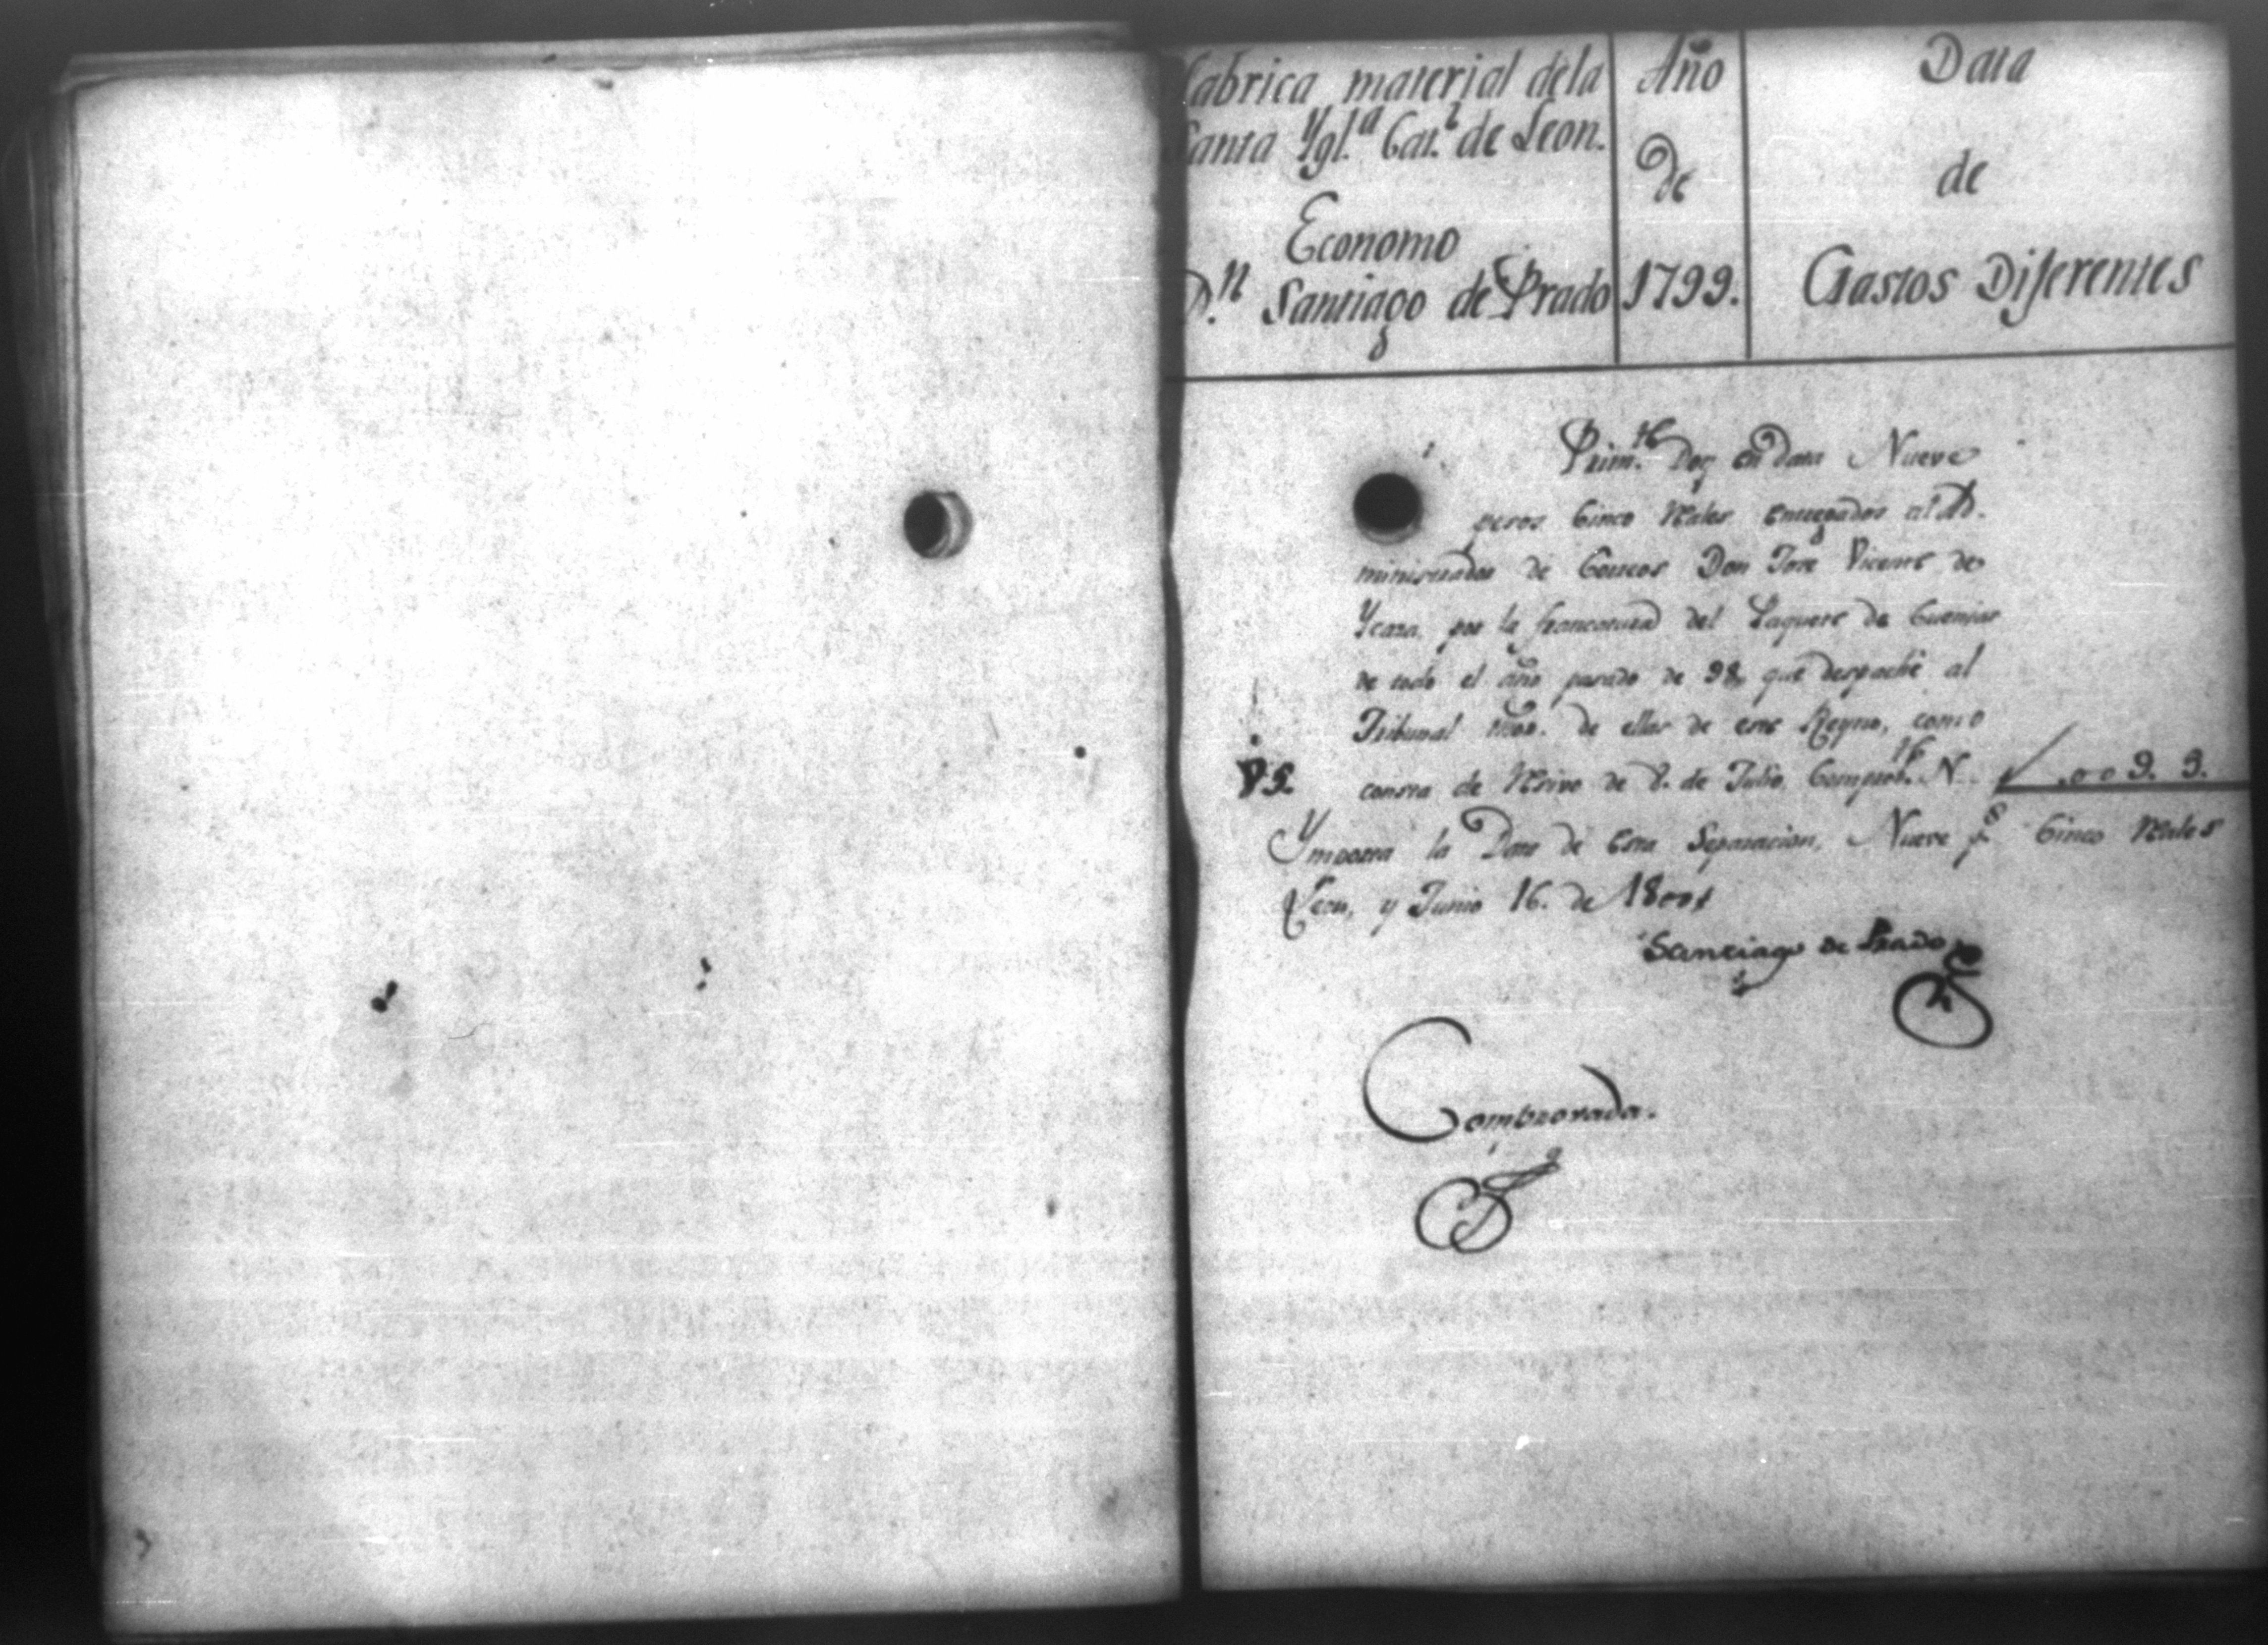 Fabrica material dela
Santa Ygl.ª Cat.l de Leon.
Economo
D.n Santiago de Prado
Año
De
1799.
Data
de
Gastos Diferentes
Prim.te Doy en data Nueve
pesos Cinco Reales entregados al Ad-
ministrador de Correos Don Jose Vicente de
Ycaza, por la francatura del Paquete de Cuentas
de todo el año pasado de 98, que despaché al
Tribunal mor. de ellas de este Reyno, como
consta de Recivo de 8. de Julio, Comprob.te N.
Ymporta la Data de esta Separacion, Nueve p.s Cinco Reales
Leon, y Junio 16. de
Santiago de Prado
Comprovada.